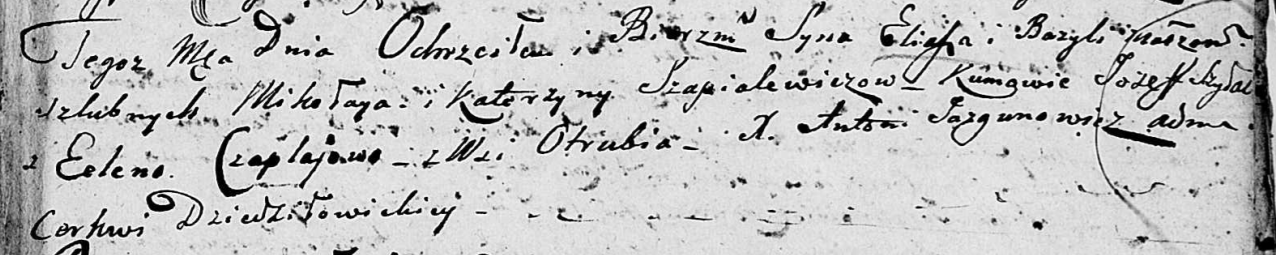 Tegoz Mca Dnia Ochrzciłem i Bierzm Syna Eliasza i Bazyli
szlubnych Mikołaya i Katerzyny Szapialewiczow _ Kumowie Jozeff
z Eeleno. Czaplajowo _ z Wsi Otrubia _ X. Antoni Jazgunowicz adm
Cerkwi Dziedziłowickiey _